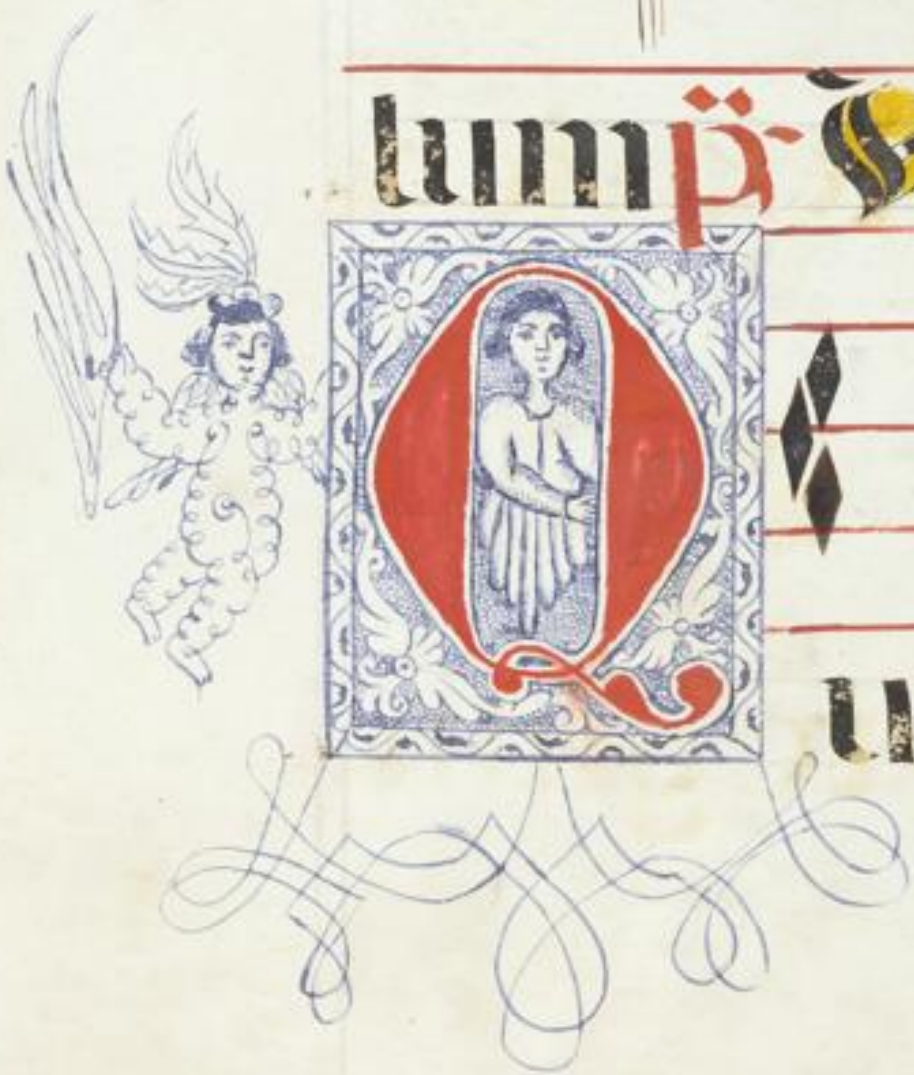 lum p̈
Q
u